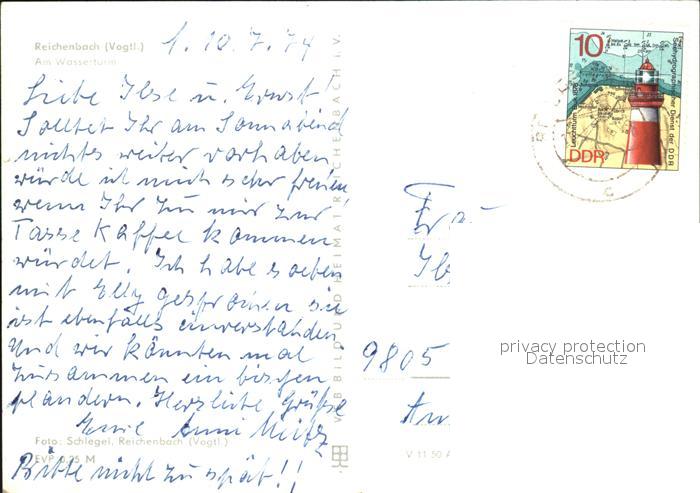 Reichenbach (Vogtl.)
Am Wasserturm
10.7.74
Liebe Ilse u. Ernst!
Solltet Ihr am Sonnabend
nichts weiter vorhaben,
würde ich mich sehr freuen
wenn Ihr zu mir zur
Tasse Kaffee kommen
würdet. Ich habe soeben
mit Elly gesprochen sie
ist ebenfalls einverstanden
und wir könnten mal
zusammen ein bischen
plaudern. Herzliche Grüße
Eure Anni
Foto: Schlegel, Reichenbach (Vogtl.)
EVP 0,25 M
Bitte nicht zu spät!!
VEB BILD UND HEIMAT REICHENBACH I. V.
10
Seehydrographischer Dienst der DDR
Leuchtturm
DDR
Frau
Ils
9805
V 11 50 A
privacy protection
Datenschutz